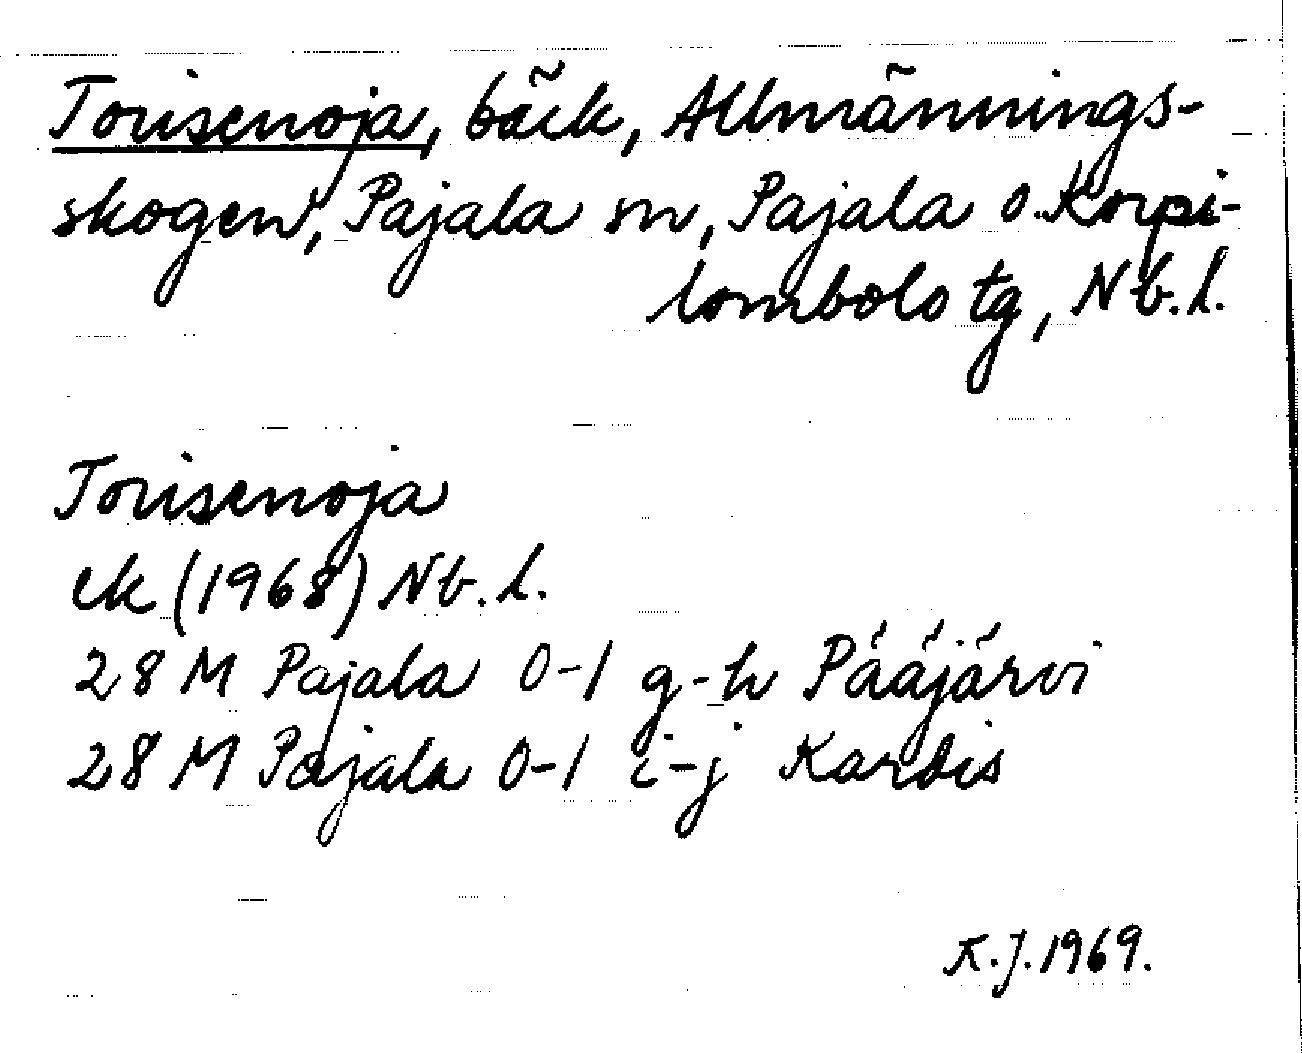 Torisenoja, bäck, Allmännings-
skogen, Pajala sn, Pajala o. Korpi-
lombolo tg, Nb.l.
Torisenoja
ek (1968) Nb.l.
28 M Pajala 0-1 g-h Pääjärvi
28 M Pajala 0-1 i-j Kardis
K.J. 1969.